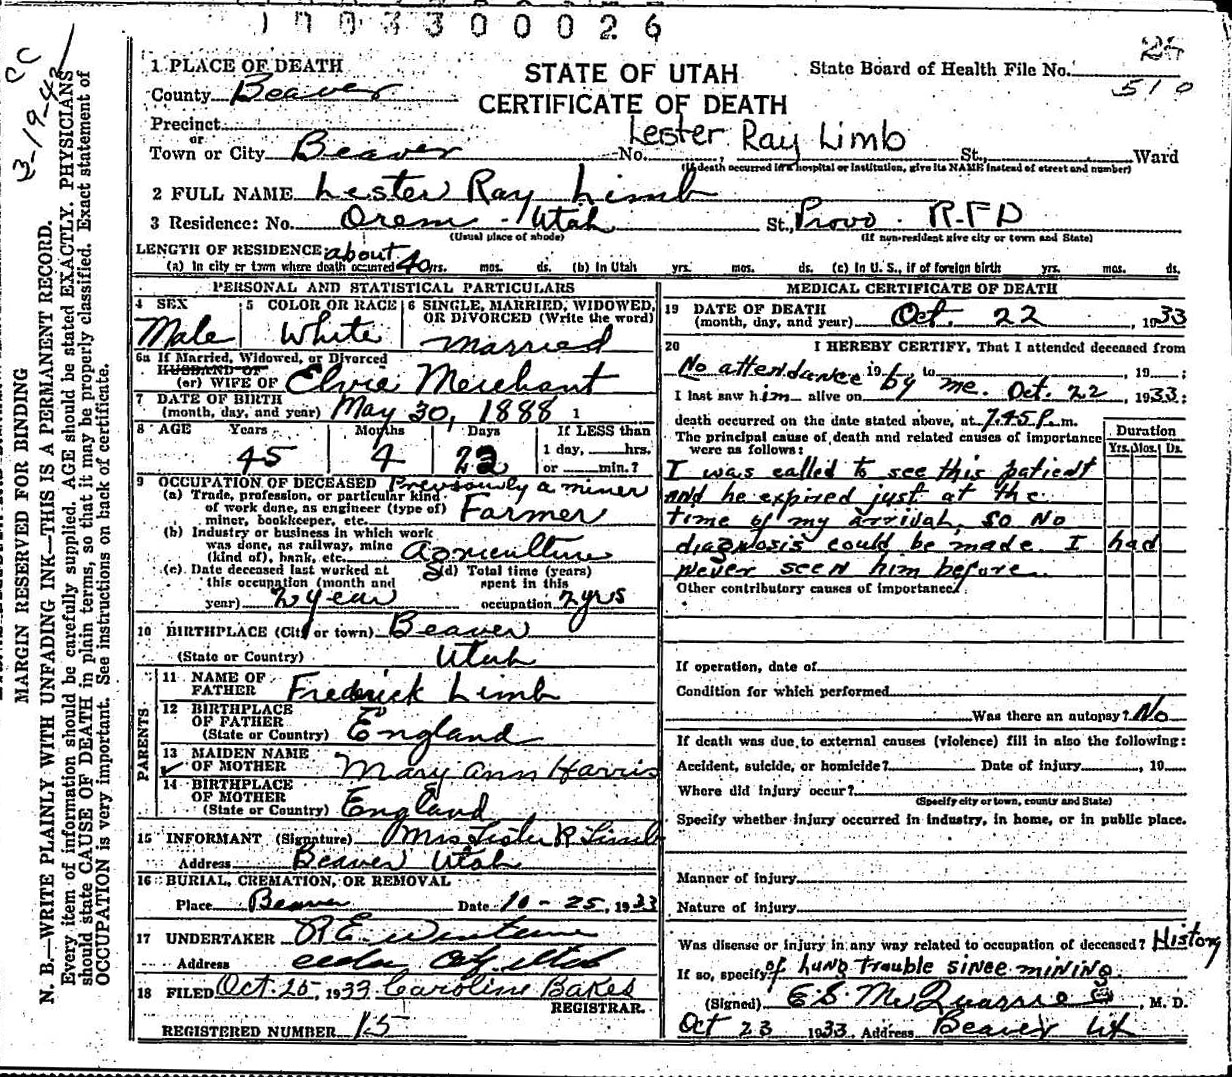 1703300026
CC
3-19-42
N. B.—WRITE PLAINLY WITH UNFADING INK—THIS IS A PERMANENT RECORD.
MARGIN RESERVED FOR BINDING
Every item of information should be carefully supplied. AGE should be stated EXACTLY. PHYSICIANS
should state CAUSE OF DEATH in plain terms, so that it may be properly classified. Exact statement of
OCCUPATION is very important. See instructions on back of certificate.
STATE OF UTAH
CERTIFICATE OF DEATH
State Board of Health File No. 24
510
1 PLACE OF DEATH
County Beaver
Precinct
or
Town or City Beaver No. Lester Ray Limb St., Ward
(If death occurred in a hospital or institution, give its NAME instead of street and number)
2 FULL NAME Lester Ray Limb
3 Residence: No. Orem - Utah St., Provo. R.F.D
(Usual place of abode) (If non-resident give city or town and State)
LENGTH OF RESIDENCE about
(a) In city or town where death occurred 40 yrs. mos. ds. (b) In Utah yrs. mos. ds. (c) In U. S., if of foreign birth yrs. mos. ds.
PERSONAL AND STATISTICAL PARTICULARS
4 SEX 5 COLOR OR RACE 6 SINGLE, MARRIED, WIDOWED,
OR DIVORCED (Write the word)
Male White Married
6a If Married, Widowed, or Divorced
HUSBAND OF
(or) WIFE OF Elvie Merchant
7 DATE OF BIRTH
(month, day, and year) May 30, 1888 1
8 AGE Years Months Days If LESS than
1 day, hrs.
or min.?
45 4 22
9 OCCUPATION OF DECEASED Previously a miner
(a) Trade, profession, or particular kind
of work done, as engineer (type of)
miner, bookkeeper, etc. Farmer
(b) Industry or business in which work
was done, as railway, mine
(kind of), bank, etc. Agriculture
(c) Date deceased last worked at
this occupation (month and
year) 2 year
(d) Total time (years)
spent in this
occupation 2 yrs
10 BIRTHPLACE (City or town) Beaver
(State or Country) Utah
PARENTS
11 NAME OF
FATHER Frederick Limb
12 BIRTHPLACE
OF FATHER
(State or Country) England
13 MAIDEN NAME
OF MOTHER Mary Ann Harris
14 BIRTHPLACE
OF MOTHER
(State or Country) England
15 INFORMANT (Signature) Mrs Lester R Limb
Address Beaver Utah
16 BURIAL, CREMATION, OR REMOVAL
Place Beaver Date 10-25, 1933
17 UNDERTAKER R.E.
Address Cedar City Utah
18 FILED Oct. 25, 1933 Caroline Bakes
REGISTRAR.
REGISTERED NUMBER 15
MEDICAL CERTIFICATE OF DEATH
19 DATE OF DEATH
(month, day, and year) Oct. 22, 1933
20 I HEREBY CERTIFY, That I attended deceased from
No attendance 19 by, to me. Oct. 22, 19 ;
I last saw him alive on , 1933;
death occurred on the date stated above, at 7.45 P. m.
The principal cause of death and related causes of importance
were as follows:
Duration
Yrs. Mos. Ds.
I was called to see this patient
and he expired just at the
time of my arrival, so No
diagnosis could be made. I had
never seen him before.
Other contributory causes of importance:
If operation, date of
Condition for which performed
Was there an autopsy? No
If death was due to external causes (violence) fill in also the following:
Accident, suicide, or homicide? Date of injury , 19
Where did injury occur?
(Specify city or town, county and State)
Specify whether injury occurred in industry, in home, or in public place.
Manner of injury
Nature of injury
Was disease or injury in any way related to occupation of deceased? History
If so, specify of lung trouble since mining.
(Signed) E.S. McQuarrie, M. D.
Oct 23 1933, Address Beaver Ut